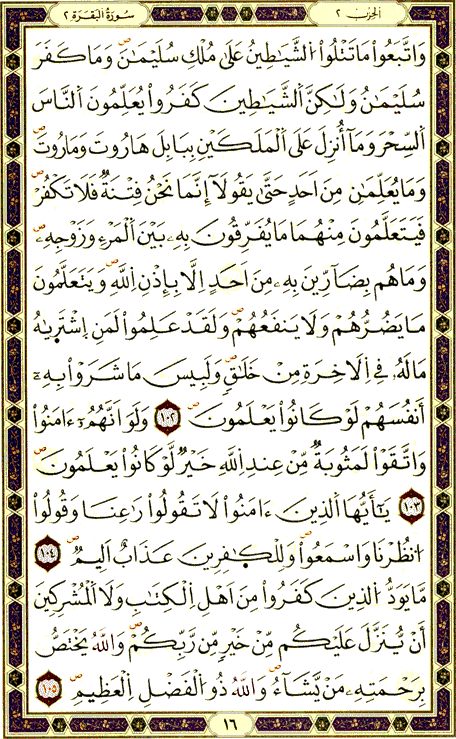 الحزب ٢
سورة البقرة ٢
وَاتَّبَعُواْ مَا تَتْلُواْ الشَّيَٰطِينُ عَلَىٰ مُلْكِ سُلَيْمَٰنَۖ وَمَا كَفَرَ
سُلَيْمَٰنُ وَلَٰكِنَّ الشَّيَٰطِينَ كَفَرُواْ يُعَلِّمُونَ النَّاسَ
اَلسِّحْرَ وَمَآ أُنزِلَ عَلَى اَلْمَلَكَيْنِ بِبَابِلَ هَٰرُوتَ وَمَٰرُوتَۖ
وَمَا يُعَلِّمَٰنِ مِنَ اَحَدٍ حَتَّىٰ يَقُولَآ إِنَّمَا نَحْنُ فِتْنَةٌ فَلَا تَكْفُرْۖ
فَيَتَعَلَّمُونَ مِنْهُمَا مَا يُفَرِّقُونَ بِهِۦ بَيْنَ اَلْمَرْءِ وَزَوْجِهِۦۖ
وَمَا هُم بِضَآرِّينَ بِهِۦ مِنَ اَحَدٍ اِلَّا بِإِذْنِ اِللَّهِۖ وَيَتَعَلَّمُونَ
مَا يَضُرُّهُمْ وَلَا يَنفَعُهُمْۖ وَلَقَدْ عَلِمُواْ لَمَنِ اِشْتَرَىٰهُ
مَا لَهُۥ فِي اِلَاخِرَةِ مِنْ خَلَٰقٍۖ وَلَبِيسَ مَا شَرَوْاْ بِهِۦٓ
أَنفُسَهُمْ لَوْ كَانُواْ يَعْلَمُونَۖ ١٠٢ وَلَوَ اَنَّهُمُۥٓ ءَامَنُواْ
وَاتَّقَوْاْ لَمَثُوبَةٌ مِّنْ عِندِ اِللَّهِ خَيْرٌ لَّوْ كَانُواْ يَعْلَمُونَۖ
١٠٣ يَٰٓأَيُّهَا اَلذِينَ ءَامَنُواْ لَا تَقُولُواْ رَٰعِنَا وَقُولُواْ
اُنظُرْنَا وَاسْمَعُواْۖ وَلِلْكَٰفِرِينَ عَذَابٌ اَلِيمٌۖ ١٠٤
مَّا يَوَدُّ اُلذِينَ كَفَرُواْ مِنَ اَهْلِ اِلْكِتَٰبِ وَلَا اَلْمُشْرِكِينَ
أَنْ يُّنَزَّلَ عَلَيْكُم مِّنْ خَيْرٍ مِّن رَّبِّكُمْۖ وَاللَّهُ يَخْتَصُّ
بِرَحْمَتِهِۦ مَنْ يَّشَآءُۖ وَاللَّهُ ذُو اُلْفَضْلِ اِلْعَظِيمِۖ ١٠٥
١٦